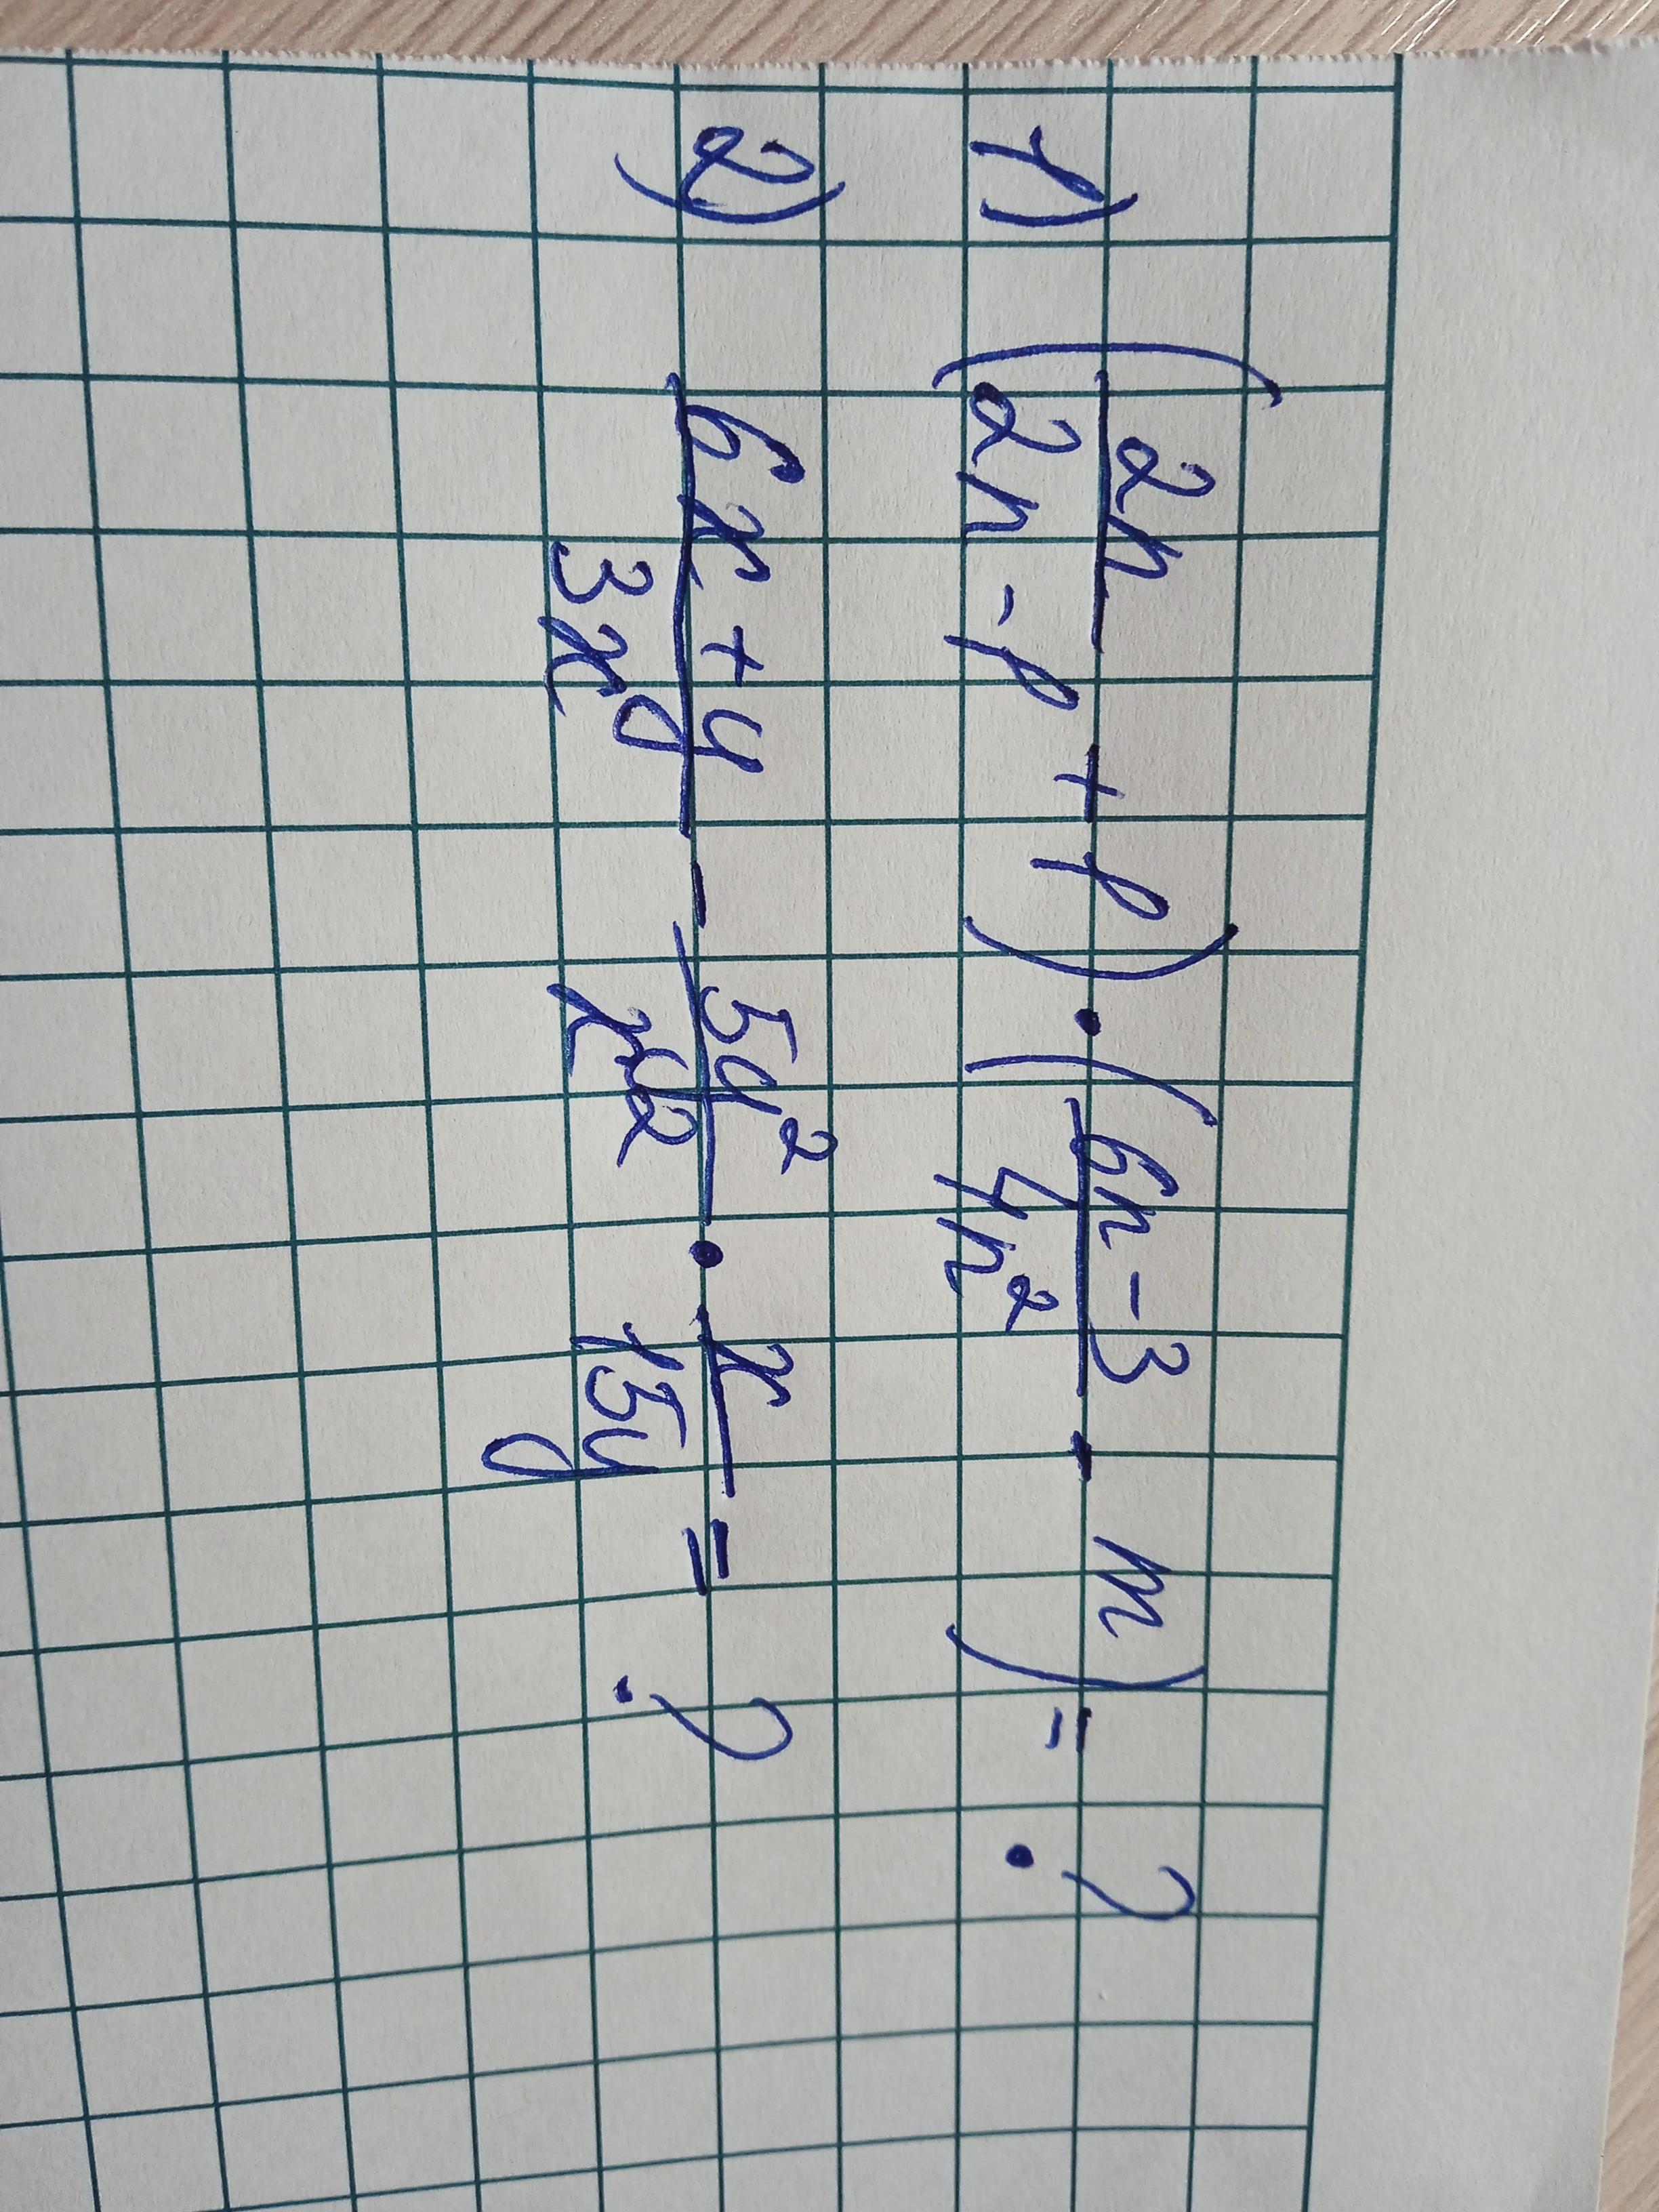 1) (2n/(2n-1) + 1) · ((6n-3)/4n² - m) = ?
2) (6x+y)/3xy - 5y²/x² · x/15y = ?